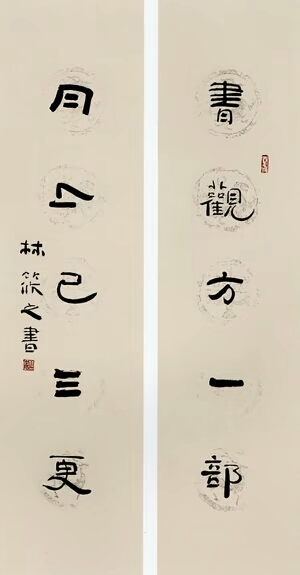 書觀方一部
月上已三更
林筱之書